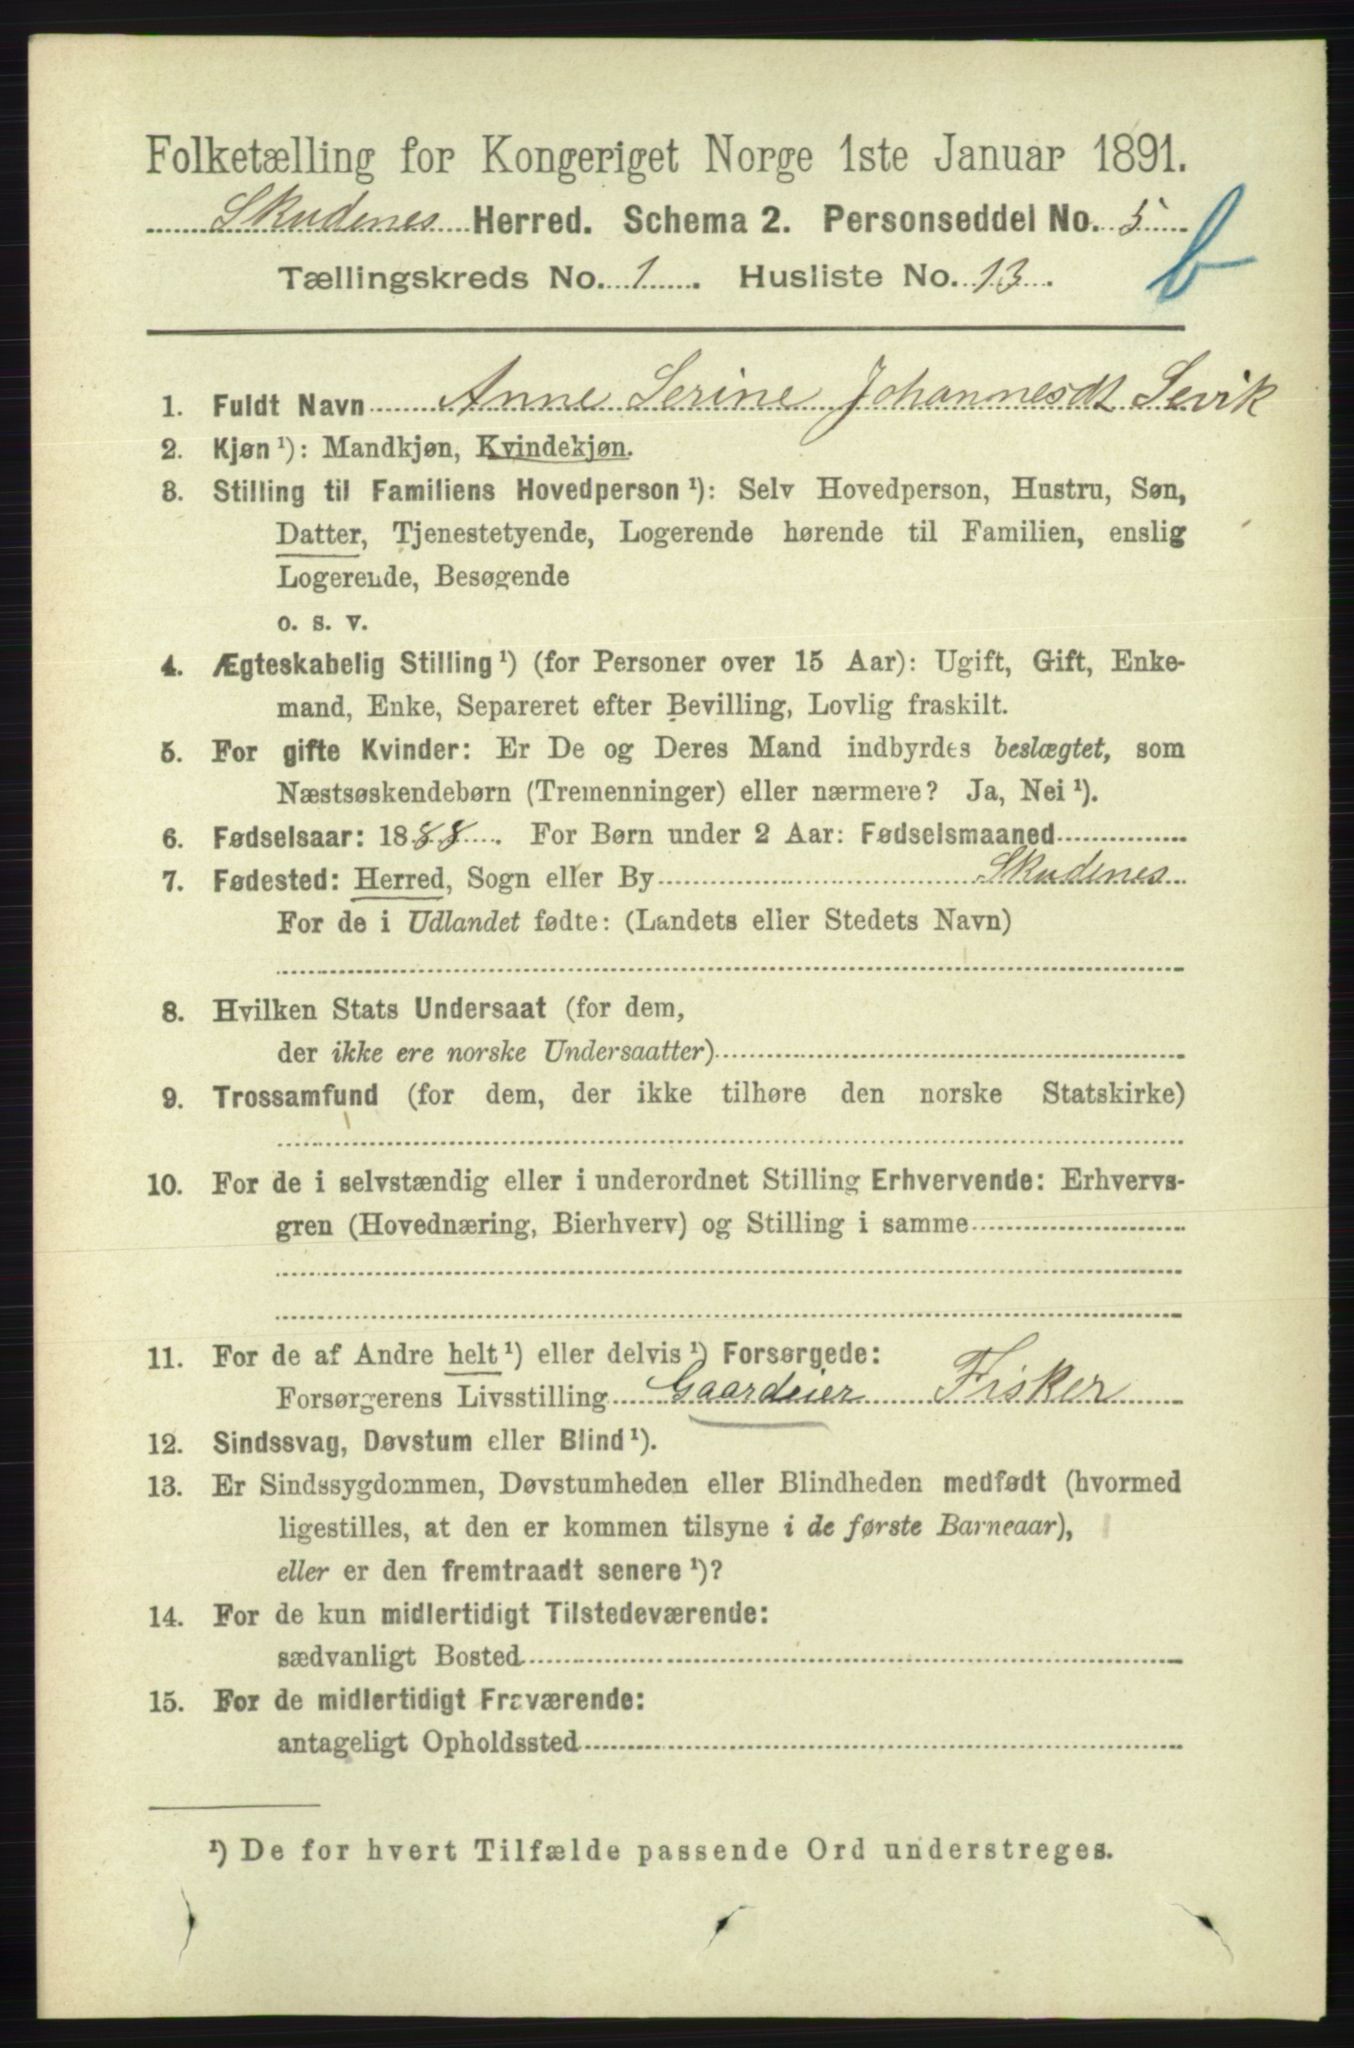 Folketælling for Kongeriget Norge 1ste Januar 1891.
Skudenes Herred. Schema 2. Personseddel No. 5
b
Tællingskreds No. 1. Husliste No. 13.
1. Fuldt Navn Anne Serine Johannesdt Sevik
2. Kjøn¹): Mandkjøn, Kvindekjøn.
3. Stilling til Familiens Hovedperson¹): Selv Hovedperson, Hustru, Søn,
Datter, Tjenestetyende, Logerende hørende til Familien, enslig
Logerende, Besøgende
o. s. v.
4. Ægteskabelig Stilling¹) (for Personer over 15 Aar): Ugift, Gift, Enke-
mand, Enke, Separeret efter Bevilling, Lovlig fraskilt.
5. For gifte Kvinder: Er De og Deres Mand indbyrdes beslægtet, som
Næstsøskendebørn (Tremenninger) eller nærmere? Ja, Nei¹).
6. Fødselsaar: 1888. For Børn under 2 Aar: Fødselsmaaned
7. Fødested: Herred, Sogn eller By Skudenes
For de i Udlandet fødte: (Landets eller Stedets Navn)
8. Hvilken Stats Undersaat (for dem,
der ikke ere norske Undersaatter)
9. Trossamfund (for dem, der ikke tilhøre den norske Statskirke)
10. For de i selvstændig eller i underordnet Stilling Erhvervende: Erhvervs-
gren (Hovednæring, Bierhverv) og Stilling i samme
11. For de af Andre helt¹) eller delvis¹) Forsørgede:
Forsørgerens Livsstilling Gaardeier Fisker
12. Sindssvag, Døvstum eller Blind¹).
13. Er Sindssygdommen, Døvstumheden eller Blindheden medfødt (hvormed
ligestilles, at den er kommen tilsyne i de første Barneaar),
eller er den fremtraadt senere¹)?
14. For de kun midlertidigt Tilstedeværende:
sædvanligt Bosted
15. For de midlertidigt Fraværende:
antageligt Opholdssted
¹) De for hvert Tilfælde passende Ord understreges.